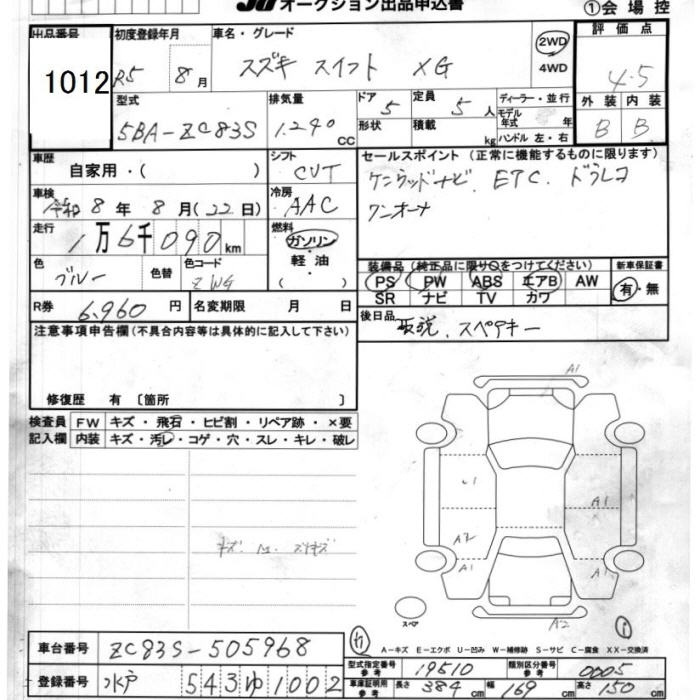 オークション出品申込書 ①会場控
出品番号 1012
初度登録年月 R5 8月
車名・グレード スズキ スイフト XG
2WD
4WD
評価点 4.5
外装 内装
B B
型式 5BA-ZC83S
排気量 1.240cc
ドア 5
形状
定員 5人
積載 kg
ディーラー・並行
モデル年式 年
ハンドル 左・右
車歴 自家用・( )
シフト CVT
車検 令和8年8月(22日)
冷房 AAC
走行 1万6千090km
燃料 ガソリン・軽油・( )
色 ブルー 色替
色コード ZWG
R券 6,960円 名変期限 月 日
セールスポイント(正常に機能するものに限ります)
ケンウッドナビ、ETC、ドラレコ
ワンオーナ
装備品(純正品に限り○をつけてください) 新車保証書
PS PW ABS エアB AW 有・無
SR ナビ TV カワ
後日品 取説、スペアキー
注意事項申告欄(不具合内容等は具体的に記入して下さい)
修復歴 有 〔箇所 〕
検査員 FW キズ・飛石・ヒビ割・リペア跡・×要
記入欄 内装 キズ・汚レ・コゲ・穴・スレ・キレ・破レ
A1
A1
A2
A1
A1
A2
スペア
A-キズ E-エクボ U-凹み W-補修跡 S-サビ C-腐食 XX-交換済
車台番号 ZC83S-505968
登録番号 水戸 543ゆ1002
型式指定番号 参考 19510 類別区分番号 参考 0005
車庫証明用 参考 長さ 384cm 幅 169cm 高さ 150cm